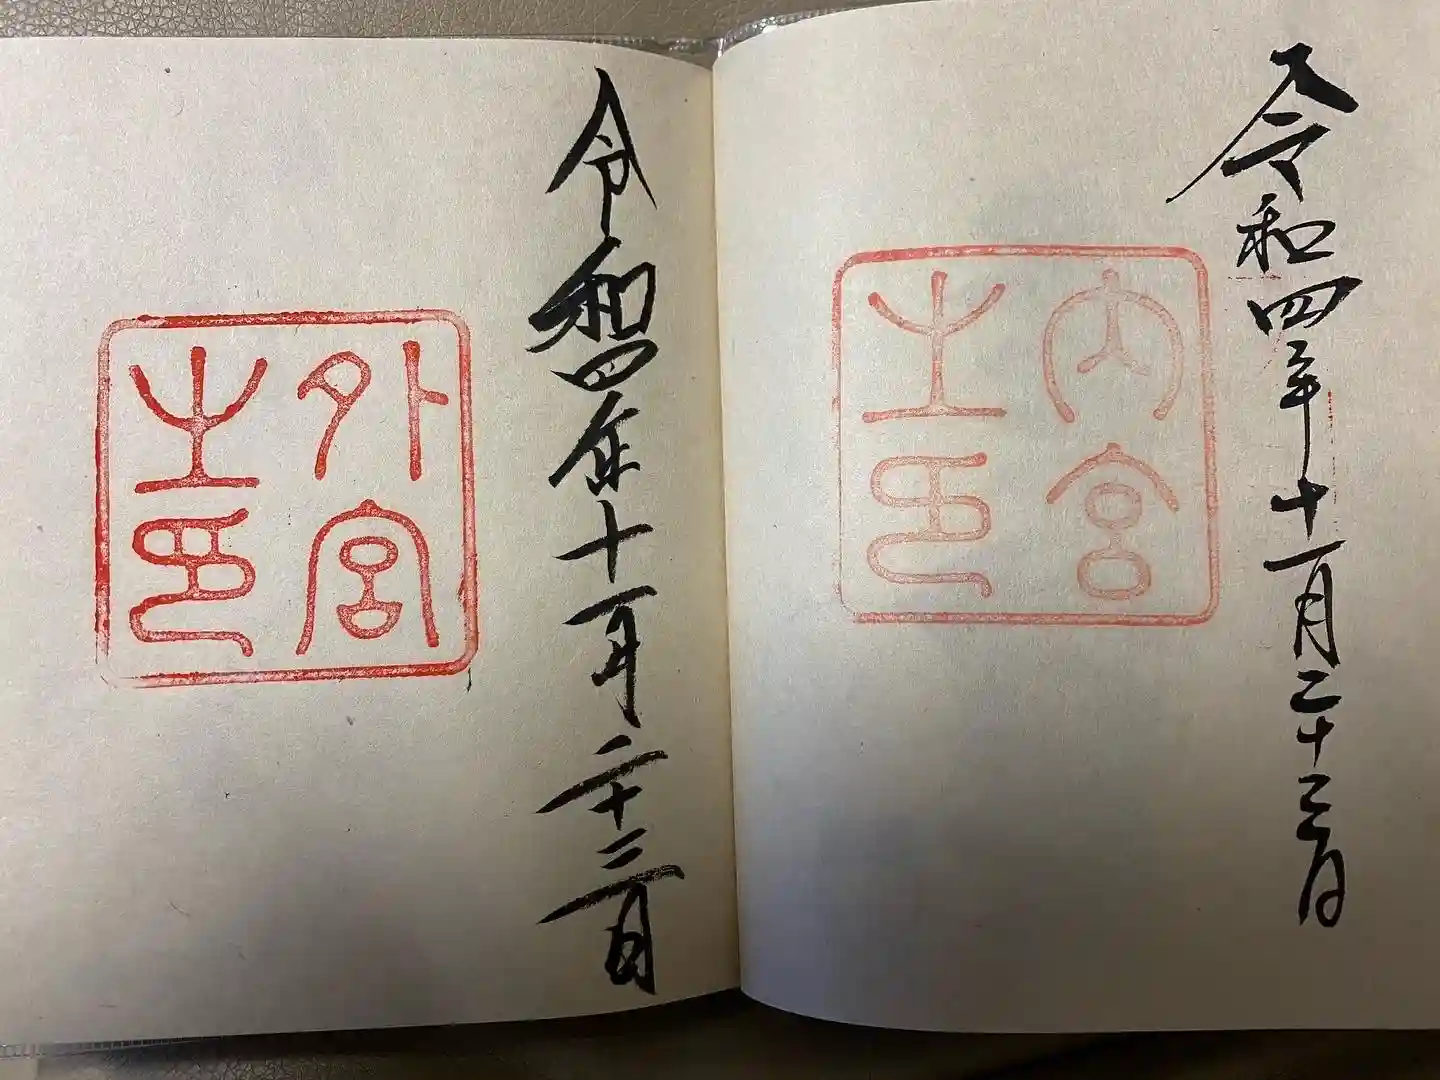 令和四年十一月二十三日
内宮之印
令和四年十一月二十三日
外宮之印